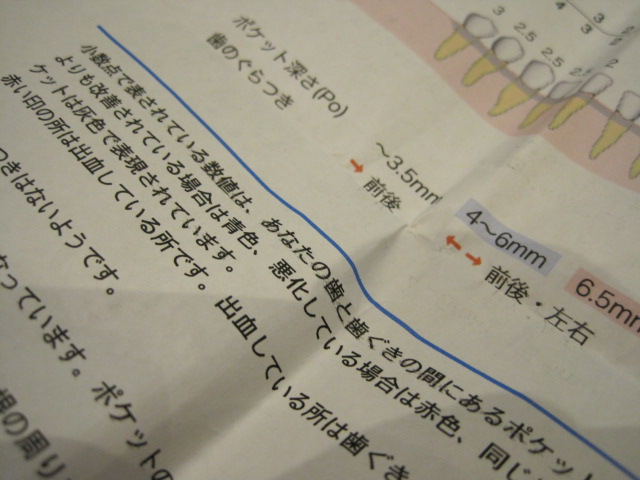 3 2.5 2.5 2 2
3 3 2
ポケット深さ(Po)
歯のぐらつき
~3.5mm
4~6mm
6.5mm
前後
前後・左右
小数点で表されている数値は、あなたの歯と歯ぐきの間にあるポケット
よりも改善されている場合は青色、悪化している場合は赤色、同じ
ケットは灰色で表現されています。
赤い印の所は出血している所です。出血している所は歯ぐき
つきはないようです。
なっています。ポケットの
根の周り